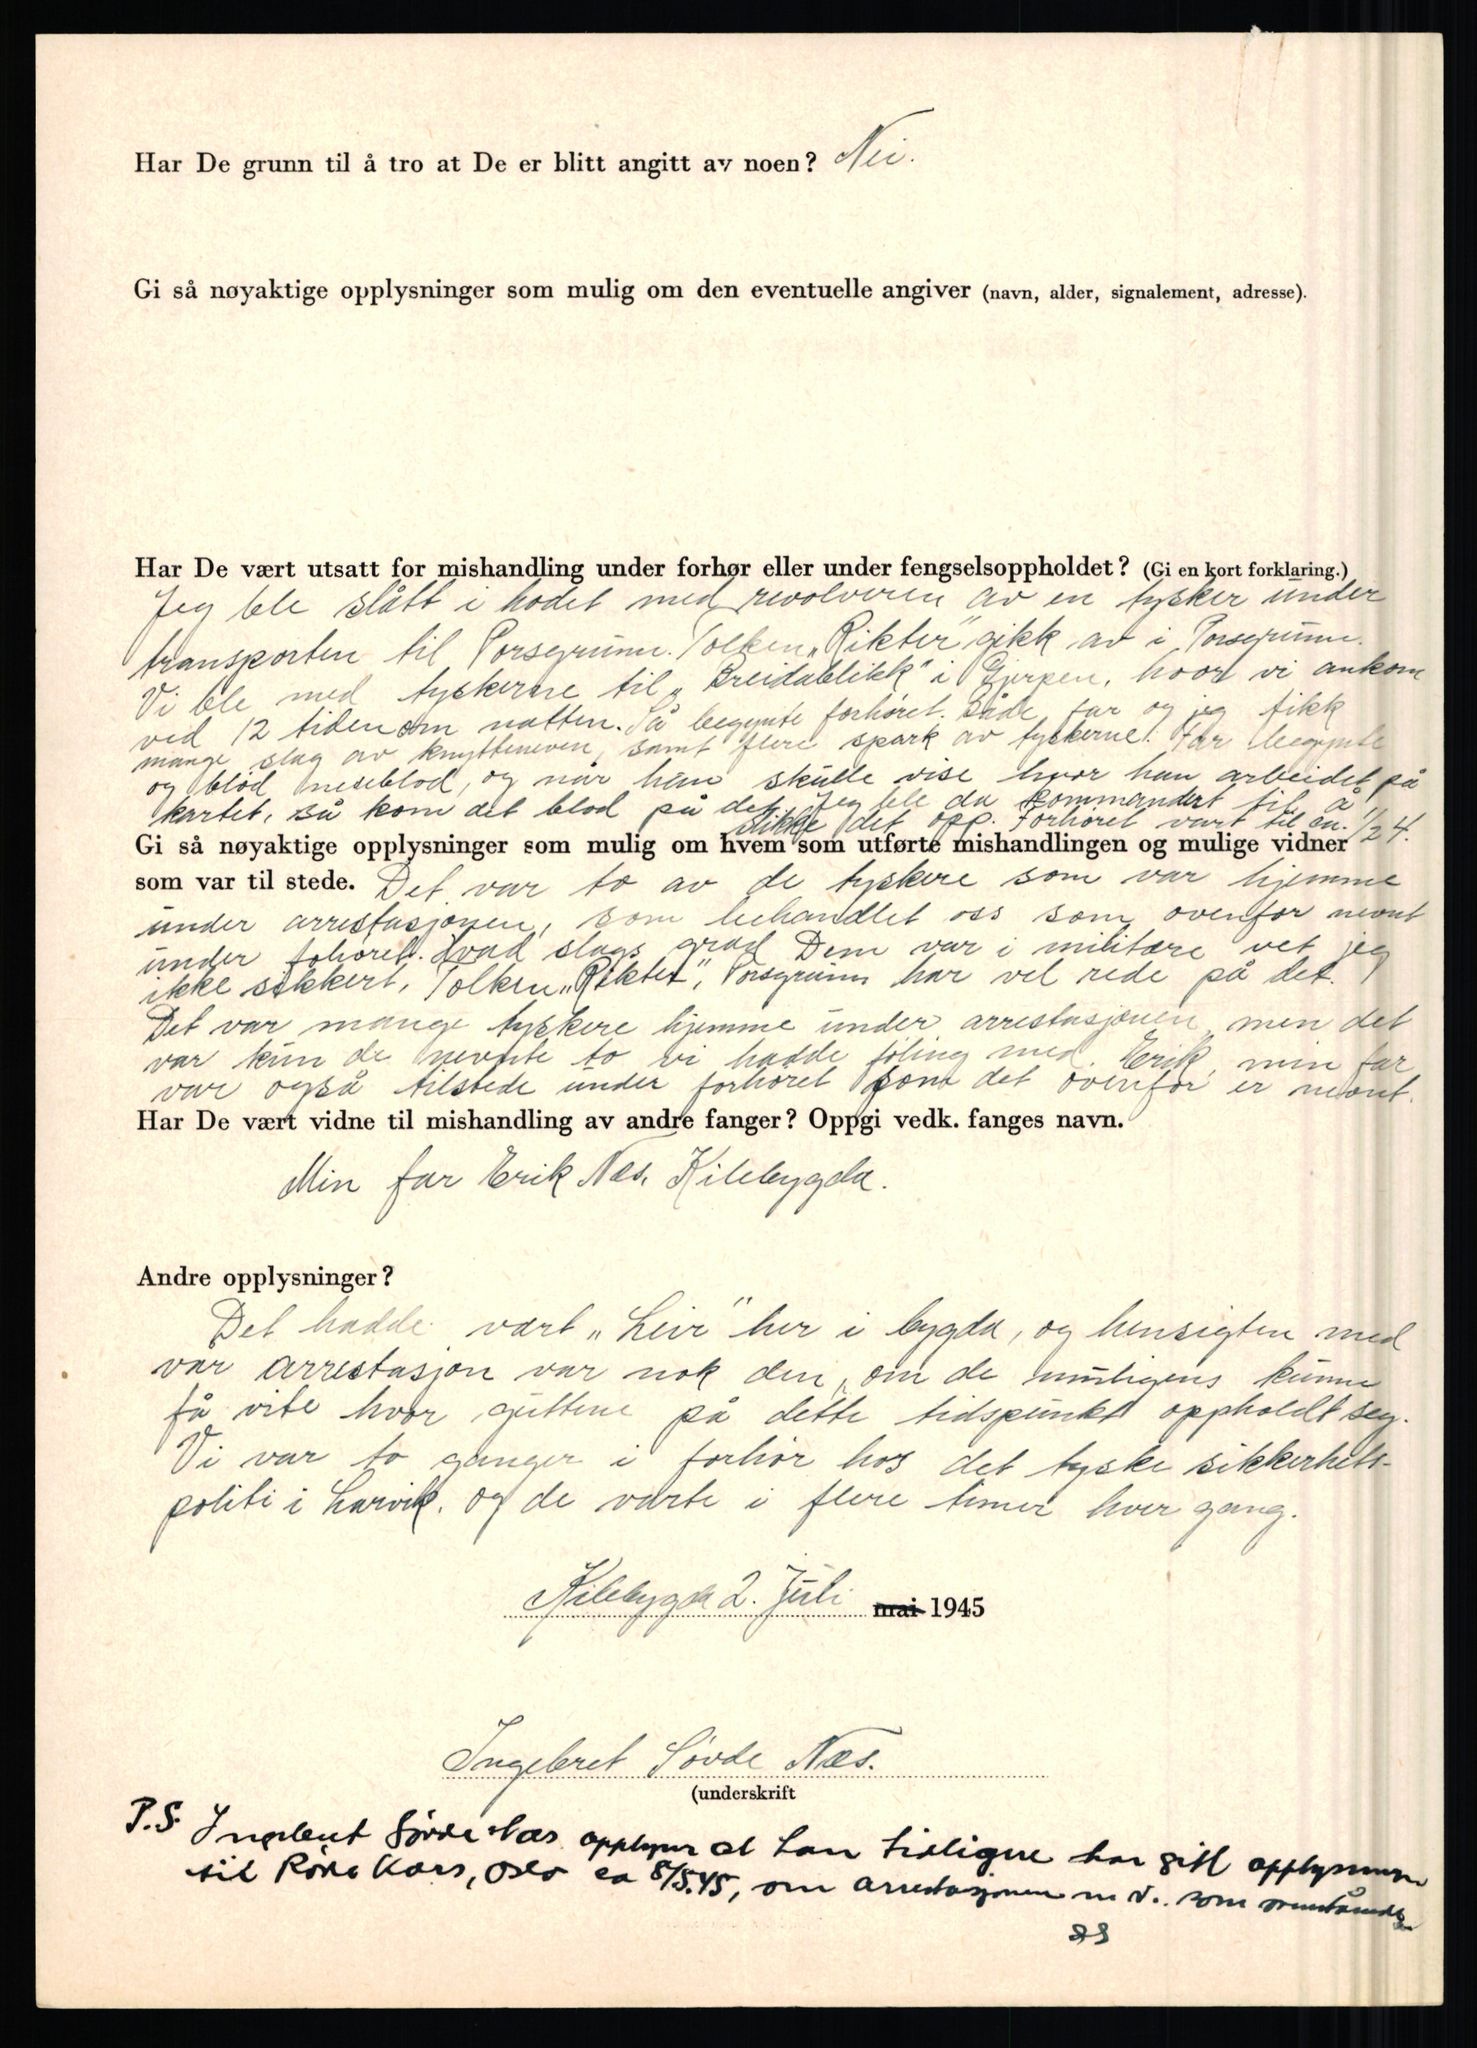 Har De grunn til å tro at De er blitt angitt av noen? Nei.
Gi så nøyaktige opplysninger som mulig om den eventuelle angiver (navn, alder, signalement, adresse).
Har De vært utsatt for mishandling under forhør eller under fengselsoppholdet? (Gi en kort forklaring.)
Jeg ble slått i hodet med revolveren av en tysker under
transporten til Porsgrunn. Tolken „Rikter" gikk av i Porsgrunn.
Vi ble med tyskerne til „Breidablikk" i Gjerpen, hvor vi ankom
ved 12 tiden om natten. Så begynte forhøret. Både far og jeg fikk
mange slag av knyttneven, samt flere spark av tyskerne. Far begynte
og blød neseblod, og når han skulle vise hvor han arbeidet på
kartet, så kom det blod på det. Jeg ble da kommandert til å
slikke det opp. Forhøret vart til ca. 1/2 4.
Gi så nøyaktige opplysninger som mulig om hvem som utførte mishandlingen og mulige vidner
som var til stede. Det var to av de tyskere som var hjemme
under arrestasjonen, som behandlet oss som ovenfor nevnt
under fohøret. Hvad slags grad Dem var i militære vet jeg
ikke sikkert, Tolken „Rikter", Porsgrunn har vel rede på det.
Det var mange tyskere hjemme under arrestasjonen, men det
var kun de nevnte to vi hadde føling med. Erik, min far
var også tilstede under forhøret som det ovenfor er nevnt.
Har De vært vidne til mishandling av andre fanger? Oppgi vedk. fanges navn.
Min far Erik Næs, Kilebygda.
Andre opplysninger?
Det hadde vært „Leir" her i bygda, og hensigten med
vår arrestasjon var nok den, om de muligens kunne
få vite hvor guttene på dette tidspunkt oppholdt seg.
Vi var to ganger i forhør hos det tyske sikkerhets-
politi i Larvik, og de varte i flere timer hver gang.
Kilebygda 2. Juli mai 1945
Ingebret Sövde Næs.
(underskrift
P.S. Ingebret Sövde Næs opplyser at han tidligere har gitt opplysninger
til Røde Kors, Oslo ca 8/5.45, om arrestasjonen m.v. som ovenstående